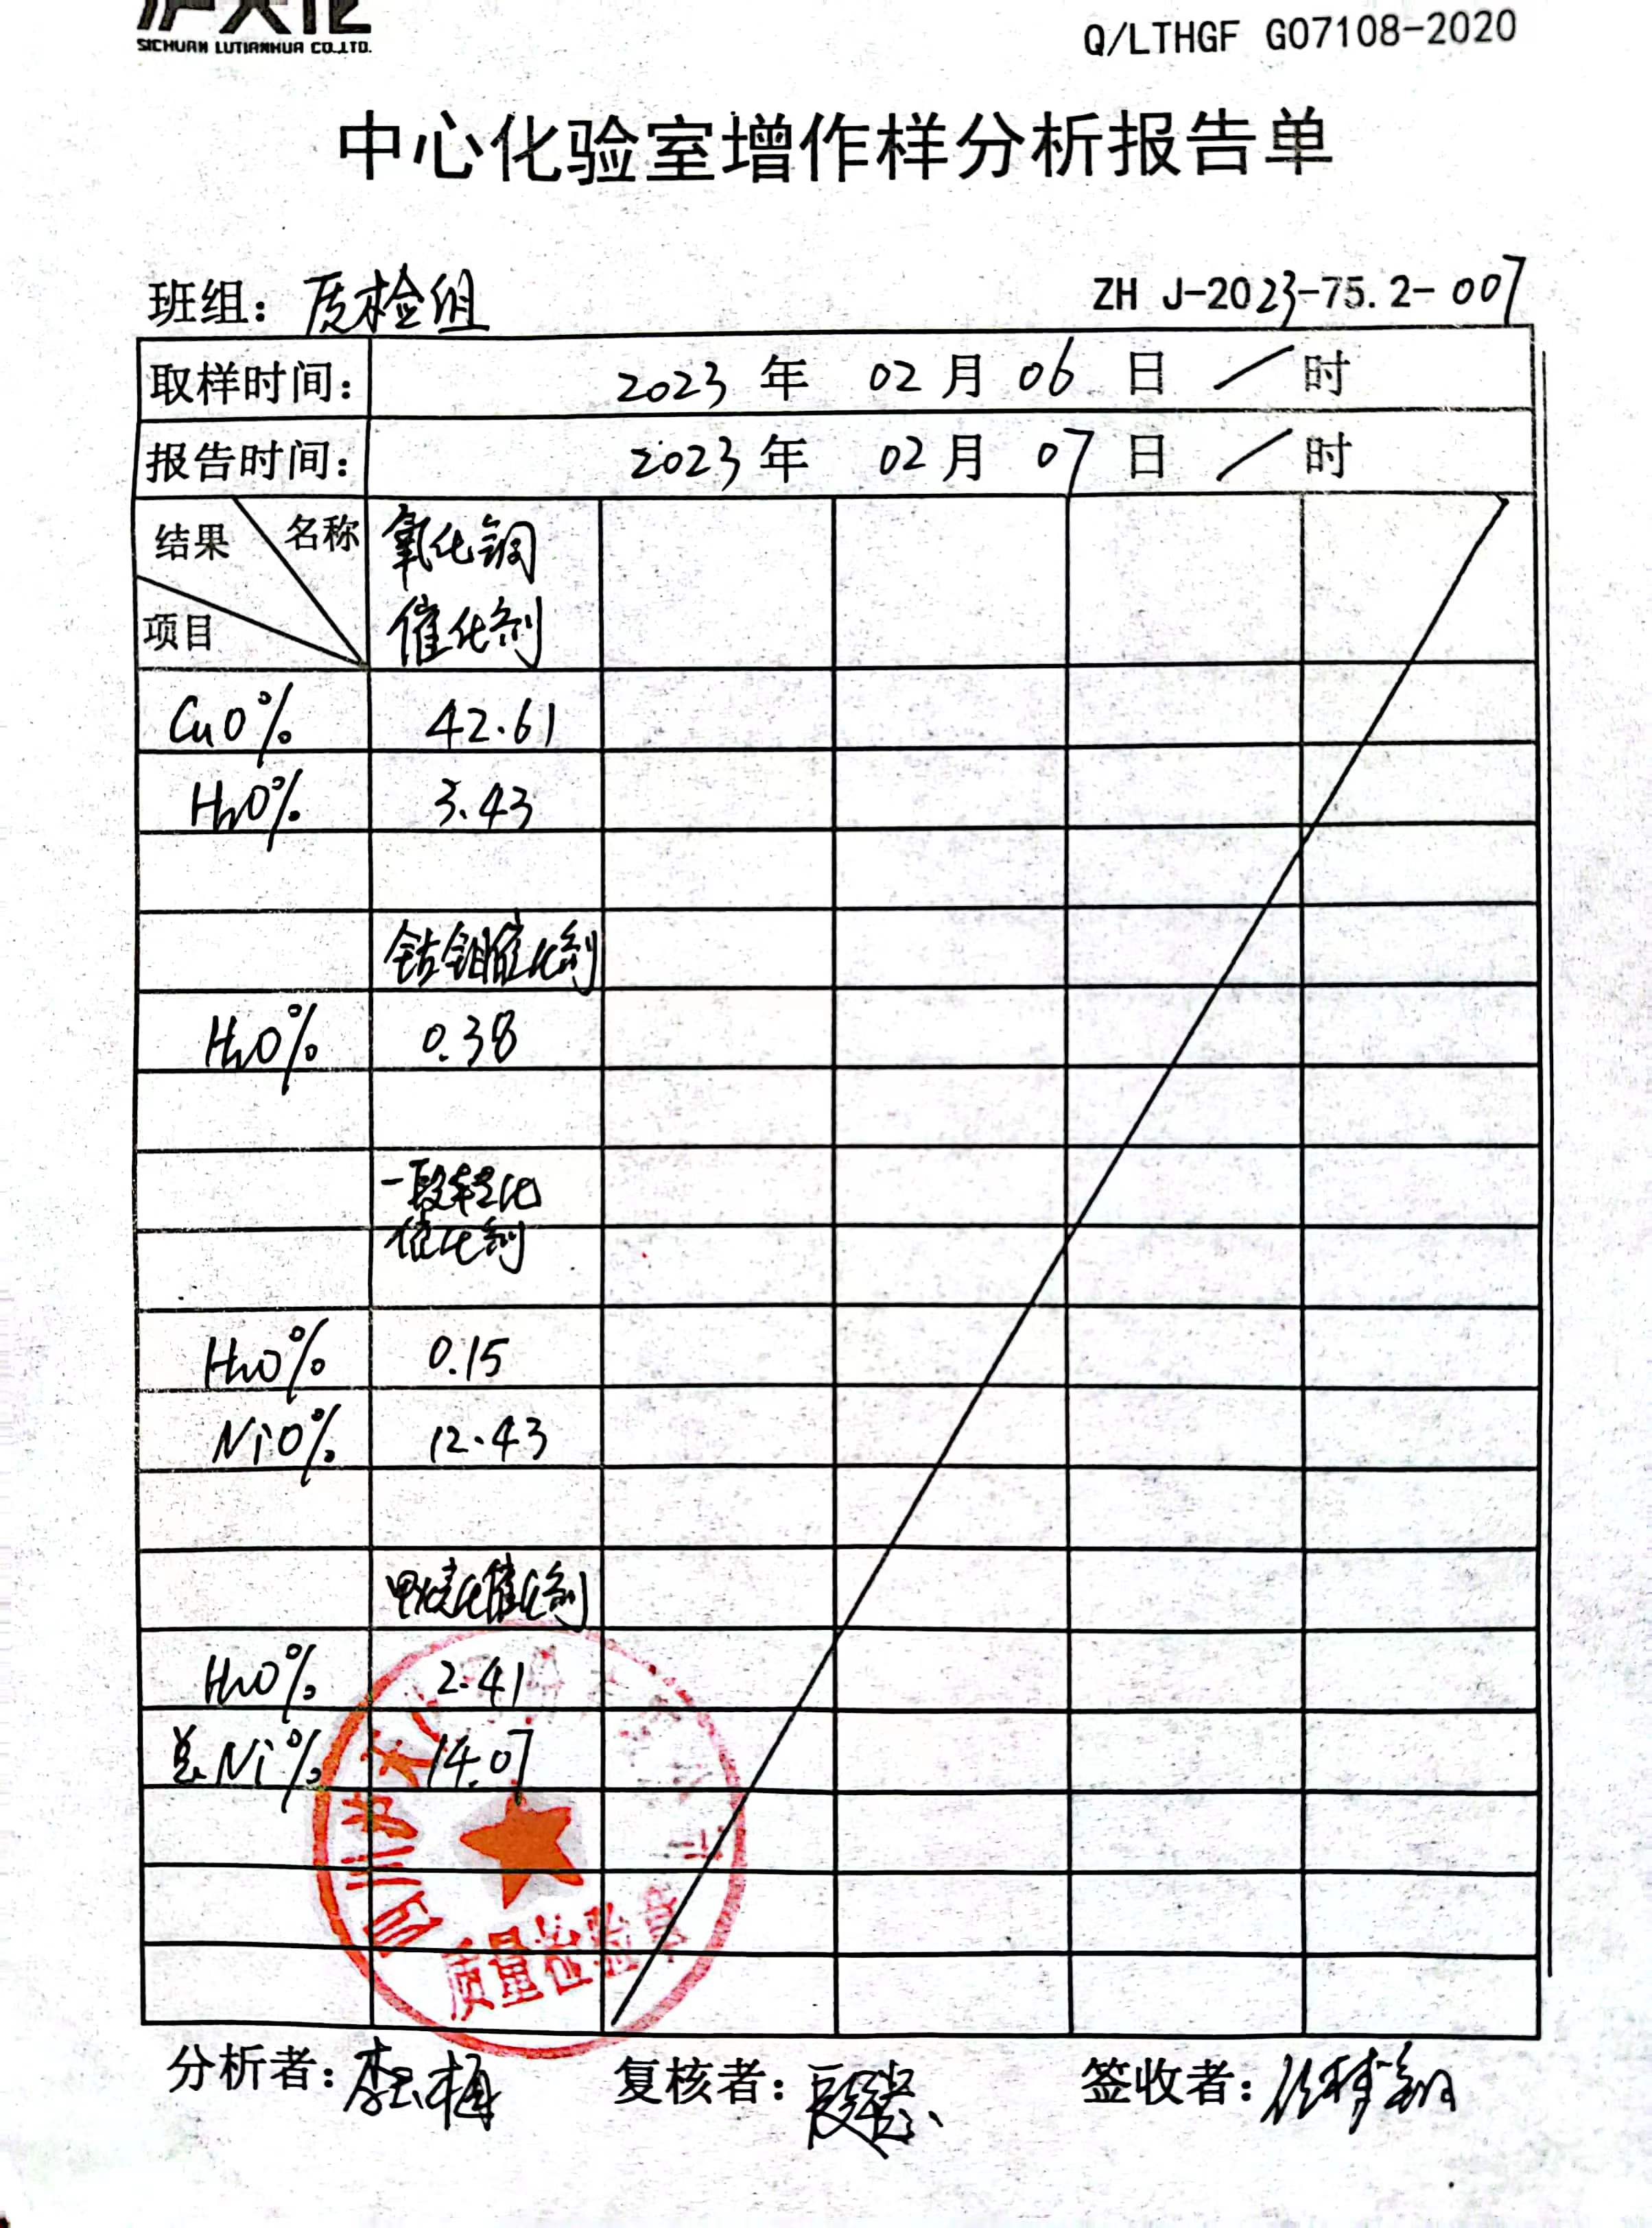 SICHUAN LUTIANHUA CO.,LTD.
Q/LTHGF G07108-2020
中心化验室增作样分析报告单
班组: 质检组 ZH J-2023-75.2-007
取样时间: 2023 年 02 月 06 日 / 时
报告时间: 2023 年 02 月 07 日 / 时
结果 名称 氧化铜
项目 催化剂
CuO% 42.61
H₂O% 3.43
钴钼催化剂
H₂O% 0.38
一段转化
催化剂
H₂O% 0.15
NiO% 12.43
甲烷化催化剂
H₂O% 2.41
总Ni% 14.07
四川泸天化
质量检验章
分析者: 复核者: 签收者: